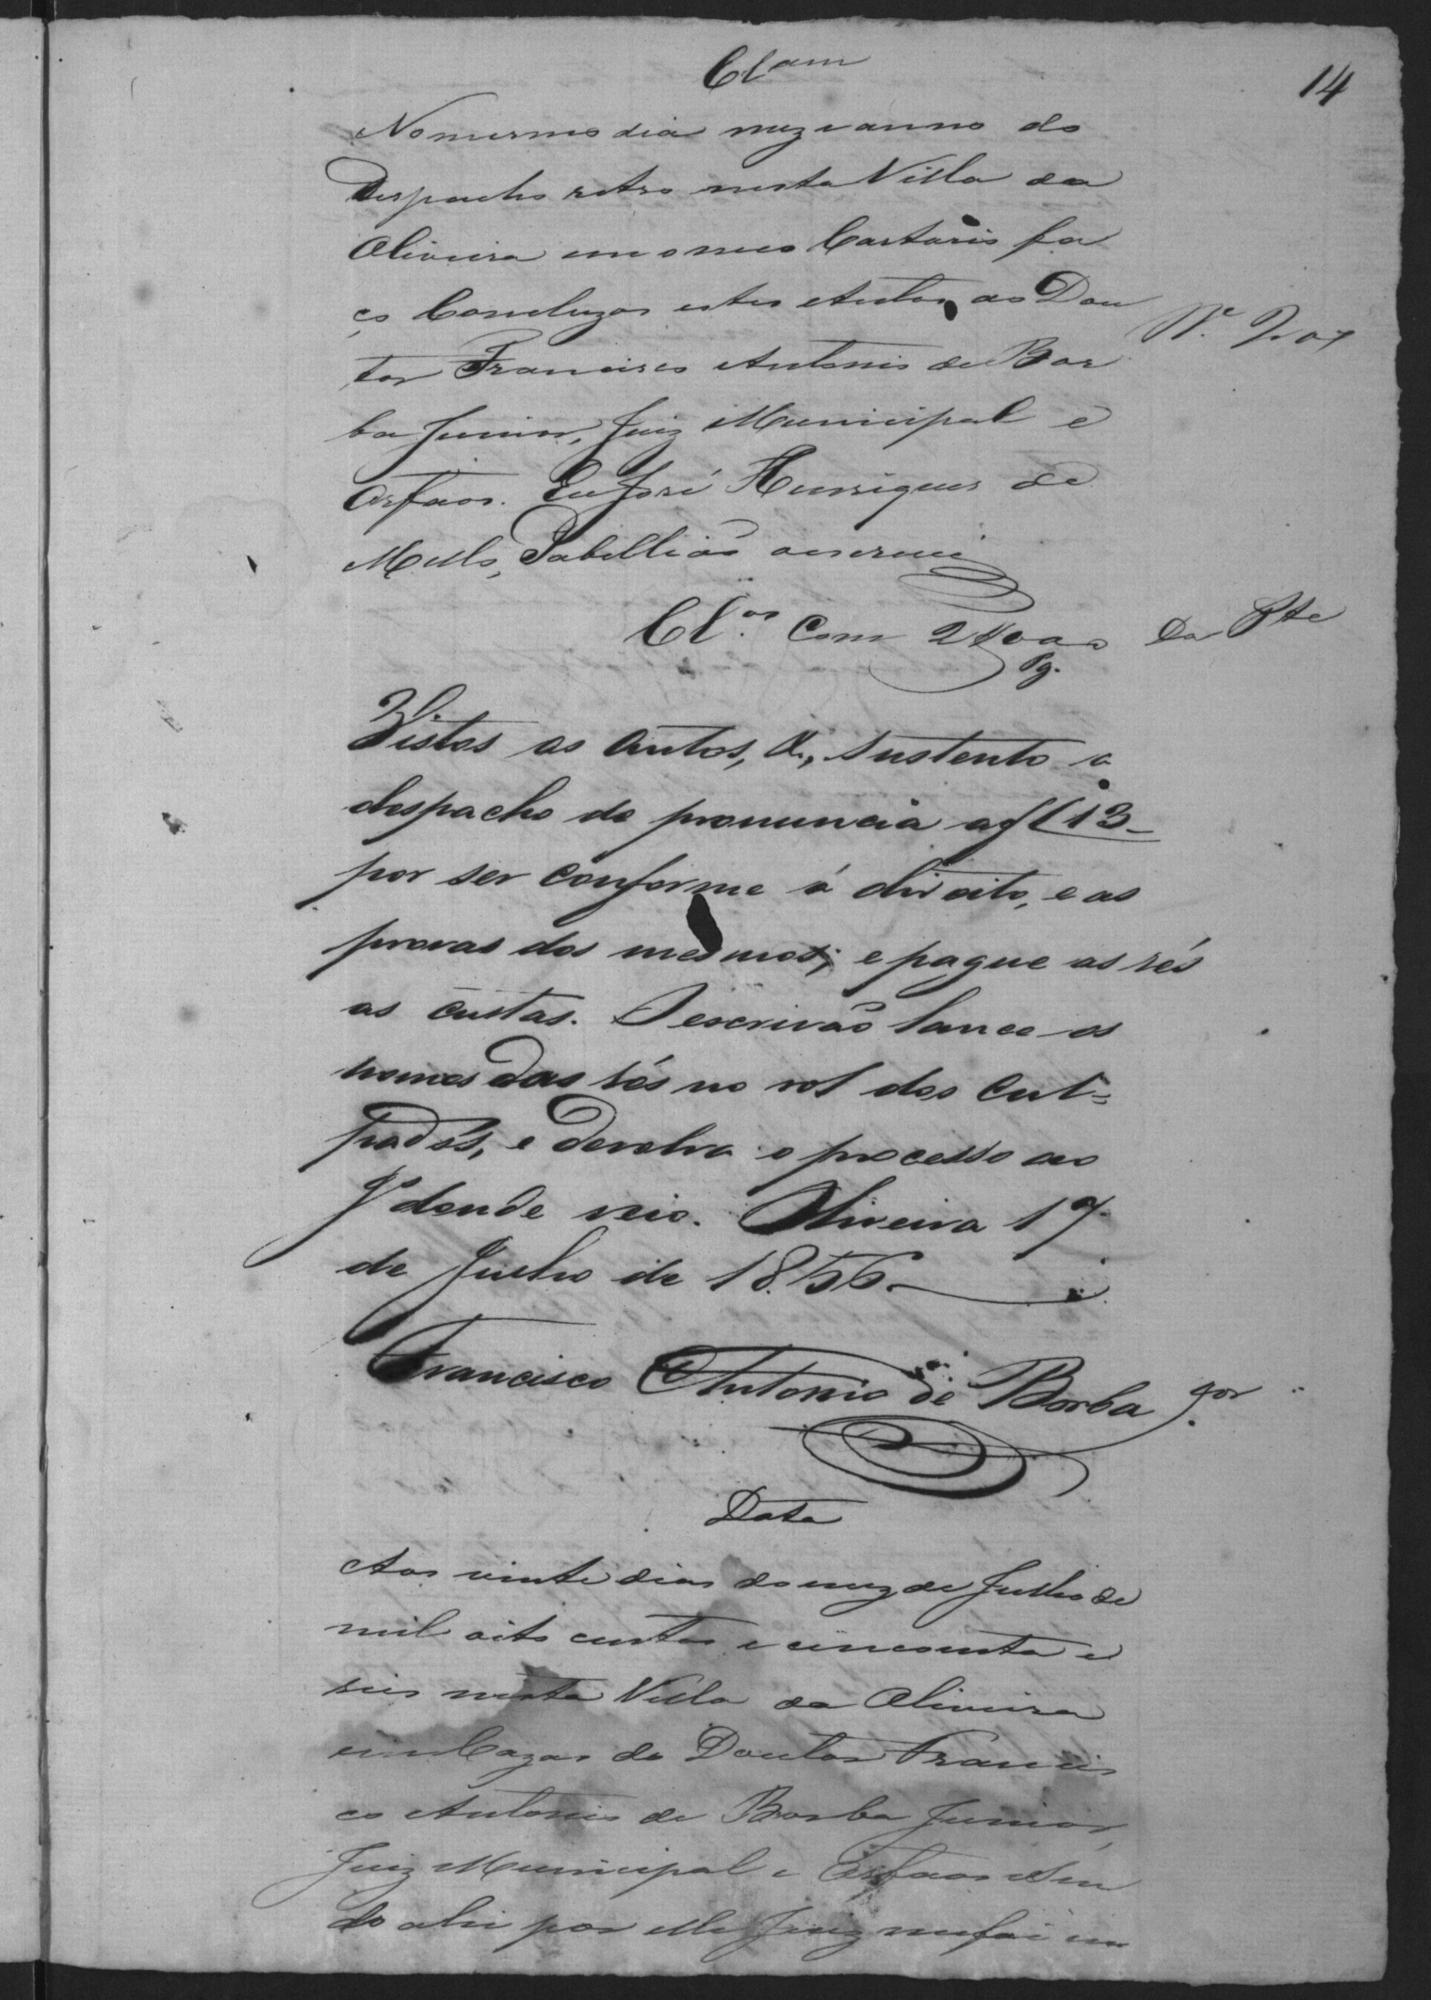 Clam
14
No mesmo dia mez e anno do
Despacho retro nesta Villa da
Oliveira em o meo Cartorio fa
ço Concluzos estes Autos ao Dou
tor Francisco Antonio de Bor
ba Junior, Juiz Municipal e
Orfaos. Eu José Henriques de
Mello, Tabellião o escrevi
Cl.os Com 2$000 da Pte
Pg.
Vistos os autos, &, sustento o
despacho de pronuncia a fl 13
por ser conforme á direito, e as
provas dos mesmos; e pague as rés
as custas. O escrivão lance os
nomes das rés no rol dos cul=
pados, e devolva o processo ao
J.o donde veio. Oliveira 17
de Julho de 1856.
Francisco Antonio de Borba Jor
Data
Aos vinte dias do mez de Julho de
mil oito centos e cincoenta e
seis nesta Villa da Oliveira
em Cazas do Doutor Francis
co Antonio de Borba Junior,
Juiz Municipal e Orfaos e Sen
do ahi por elle Juiz me foi en